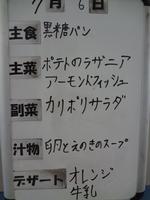 7月6日
主食 黒糖パン
主菜 ポテトのラザニア
アーモンドフィッシュ
副菜 カリポリサラダ
汁物 卵とえのきのスープ
デザート オレンジ
牛乳